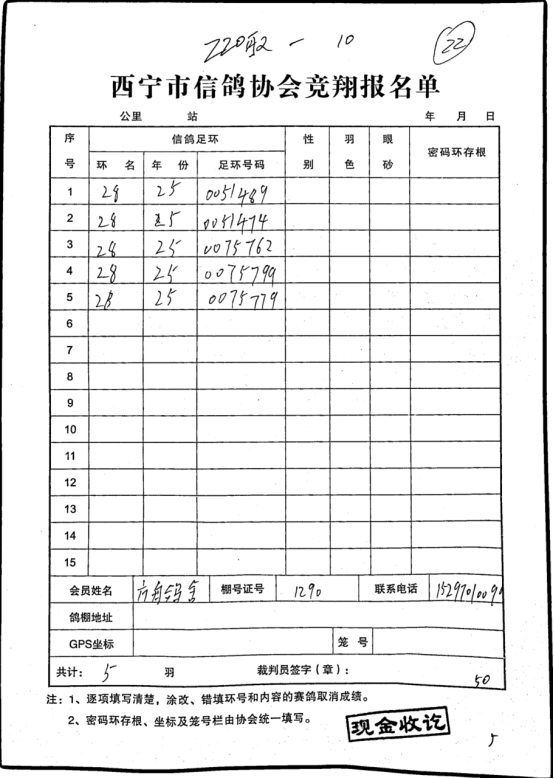 220 - 10 22
西宁市信鸽协会竞翔报名单
公里 站 年 月 日
序号 信鸽足环 性别 羽色 眼砂 密码环存根
环名 年份 足环号码
1 28 25 0051489
2 28 25 0051474
3 28 25 0075762
4 28 25 0075799
5 28 25 0075779
6
7
8
9
10
11
12
13
14
15
会员姓名 棚号证号 1290 联系电话 1529701009
鸽棚地址
GPS坐标 笼号
共计: 5 羽 裁判员签字(章): 50
注:1、逐项填写清楚,涂改、错填环号和内容的赛鸽取消成绩。
2、密码环存根、坐标及笼号栏由协会统一填写。
现金收讫
5